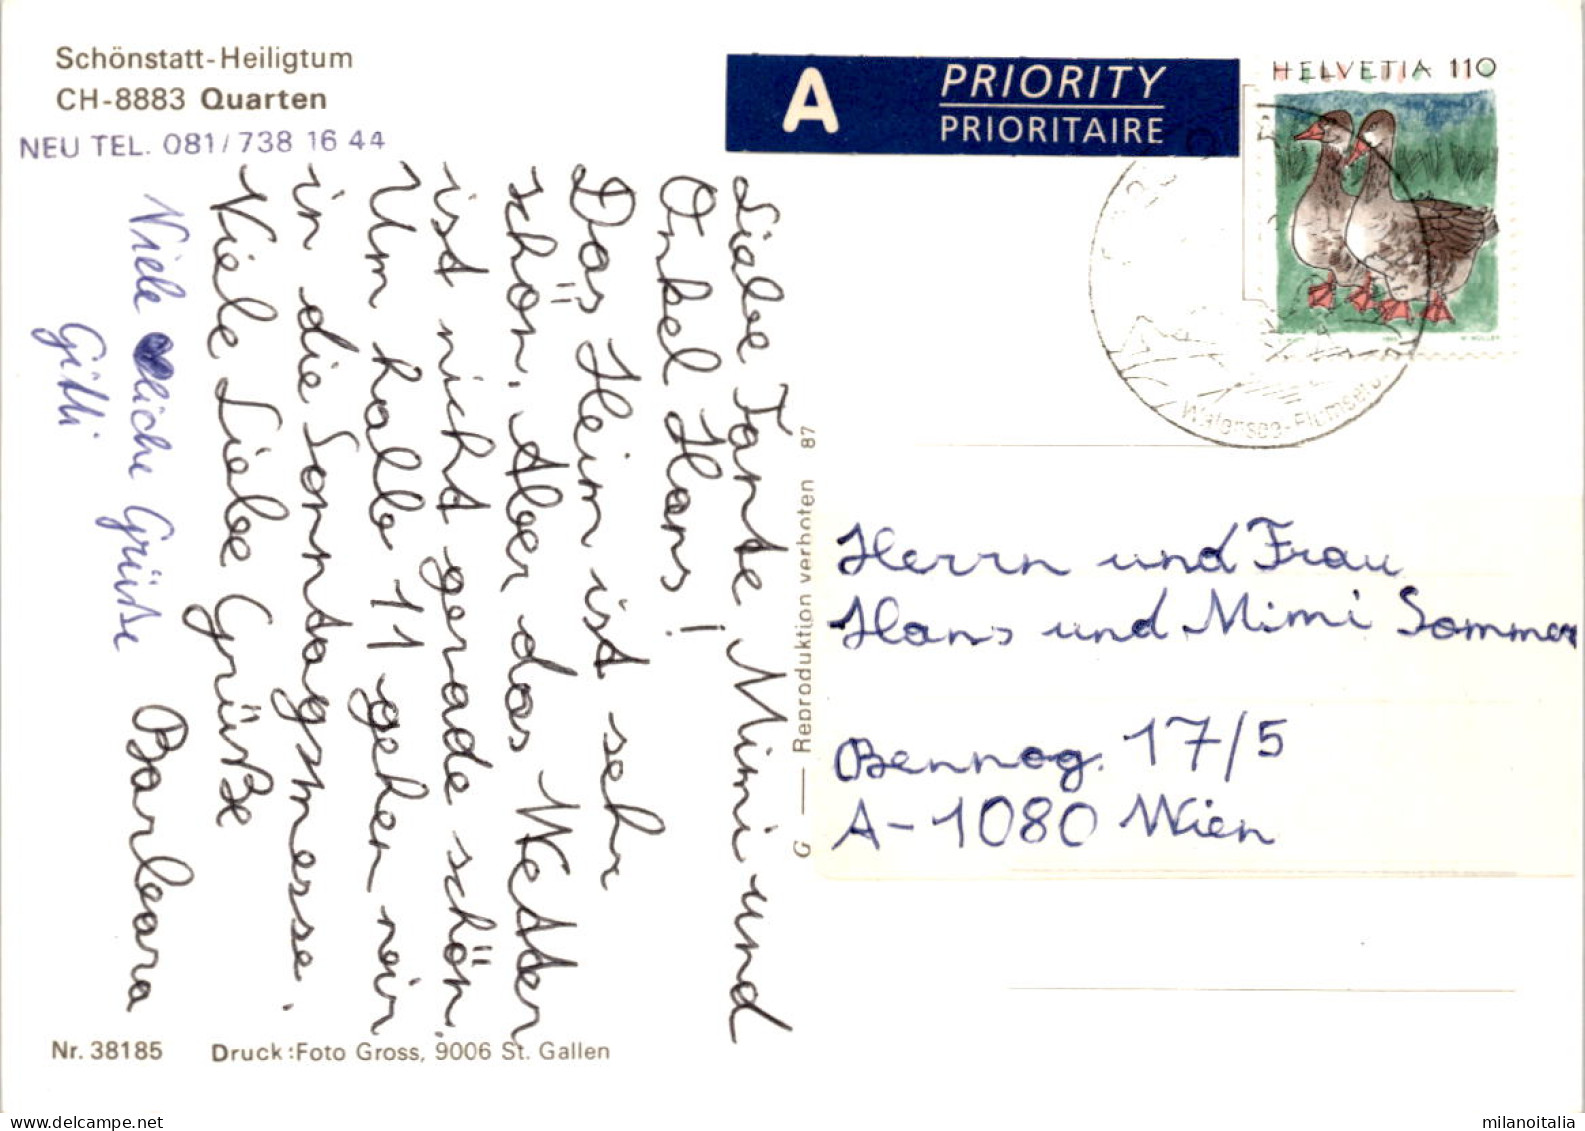 Schönstatt-Heiligtum
CH-8883 Quarten
NEU TEL. 081/738 16 44
A PRIORITY
PRIORITAIRE
HELVETIA 110
Walensee-Flumserb
Liebe Tante Mimi und
Onkel Hans!
Das Heim ist sehr
schön. Aber das Wetter
ist nicht gerade schön.
Um halb 11 gehen wir
in die Sonntagsmesse.
Viele Liebe Grüße
Barbara
Viele liche Grüße
Gitti
G — Reproduktion verboten 87
Herrn und Frau
Hans und Mimi Sommer
Bennog. 17/5
A-1080 Wien
Nr. 38185 Druck: Foto Gross, 9006 St. Gallen
milanoitalia